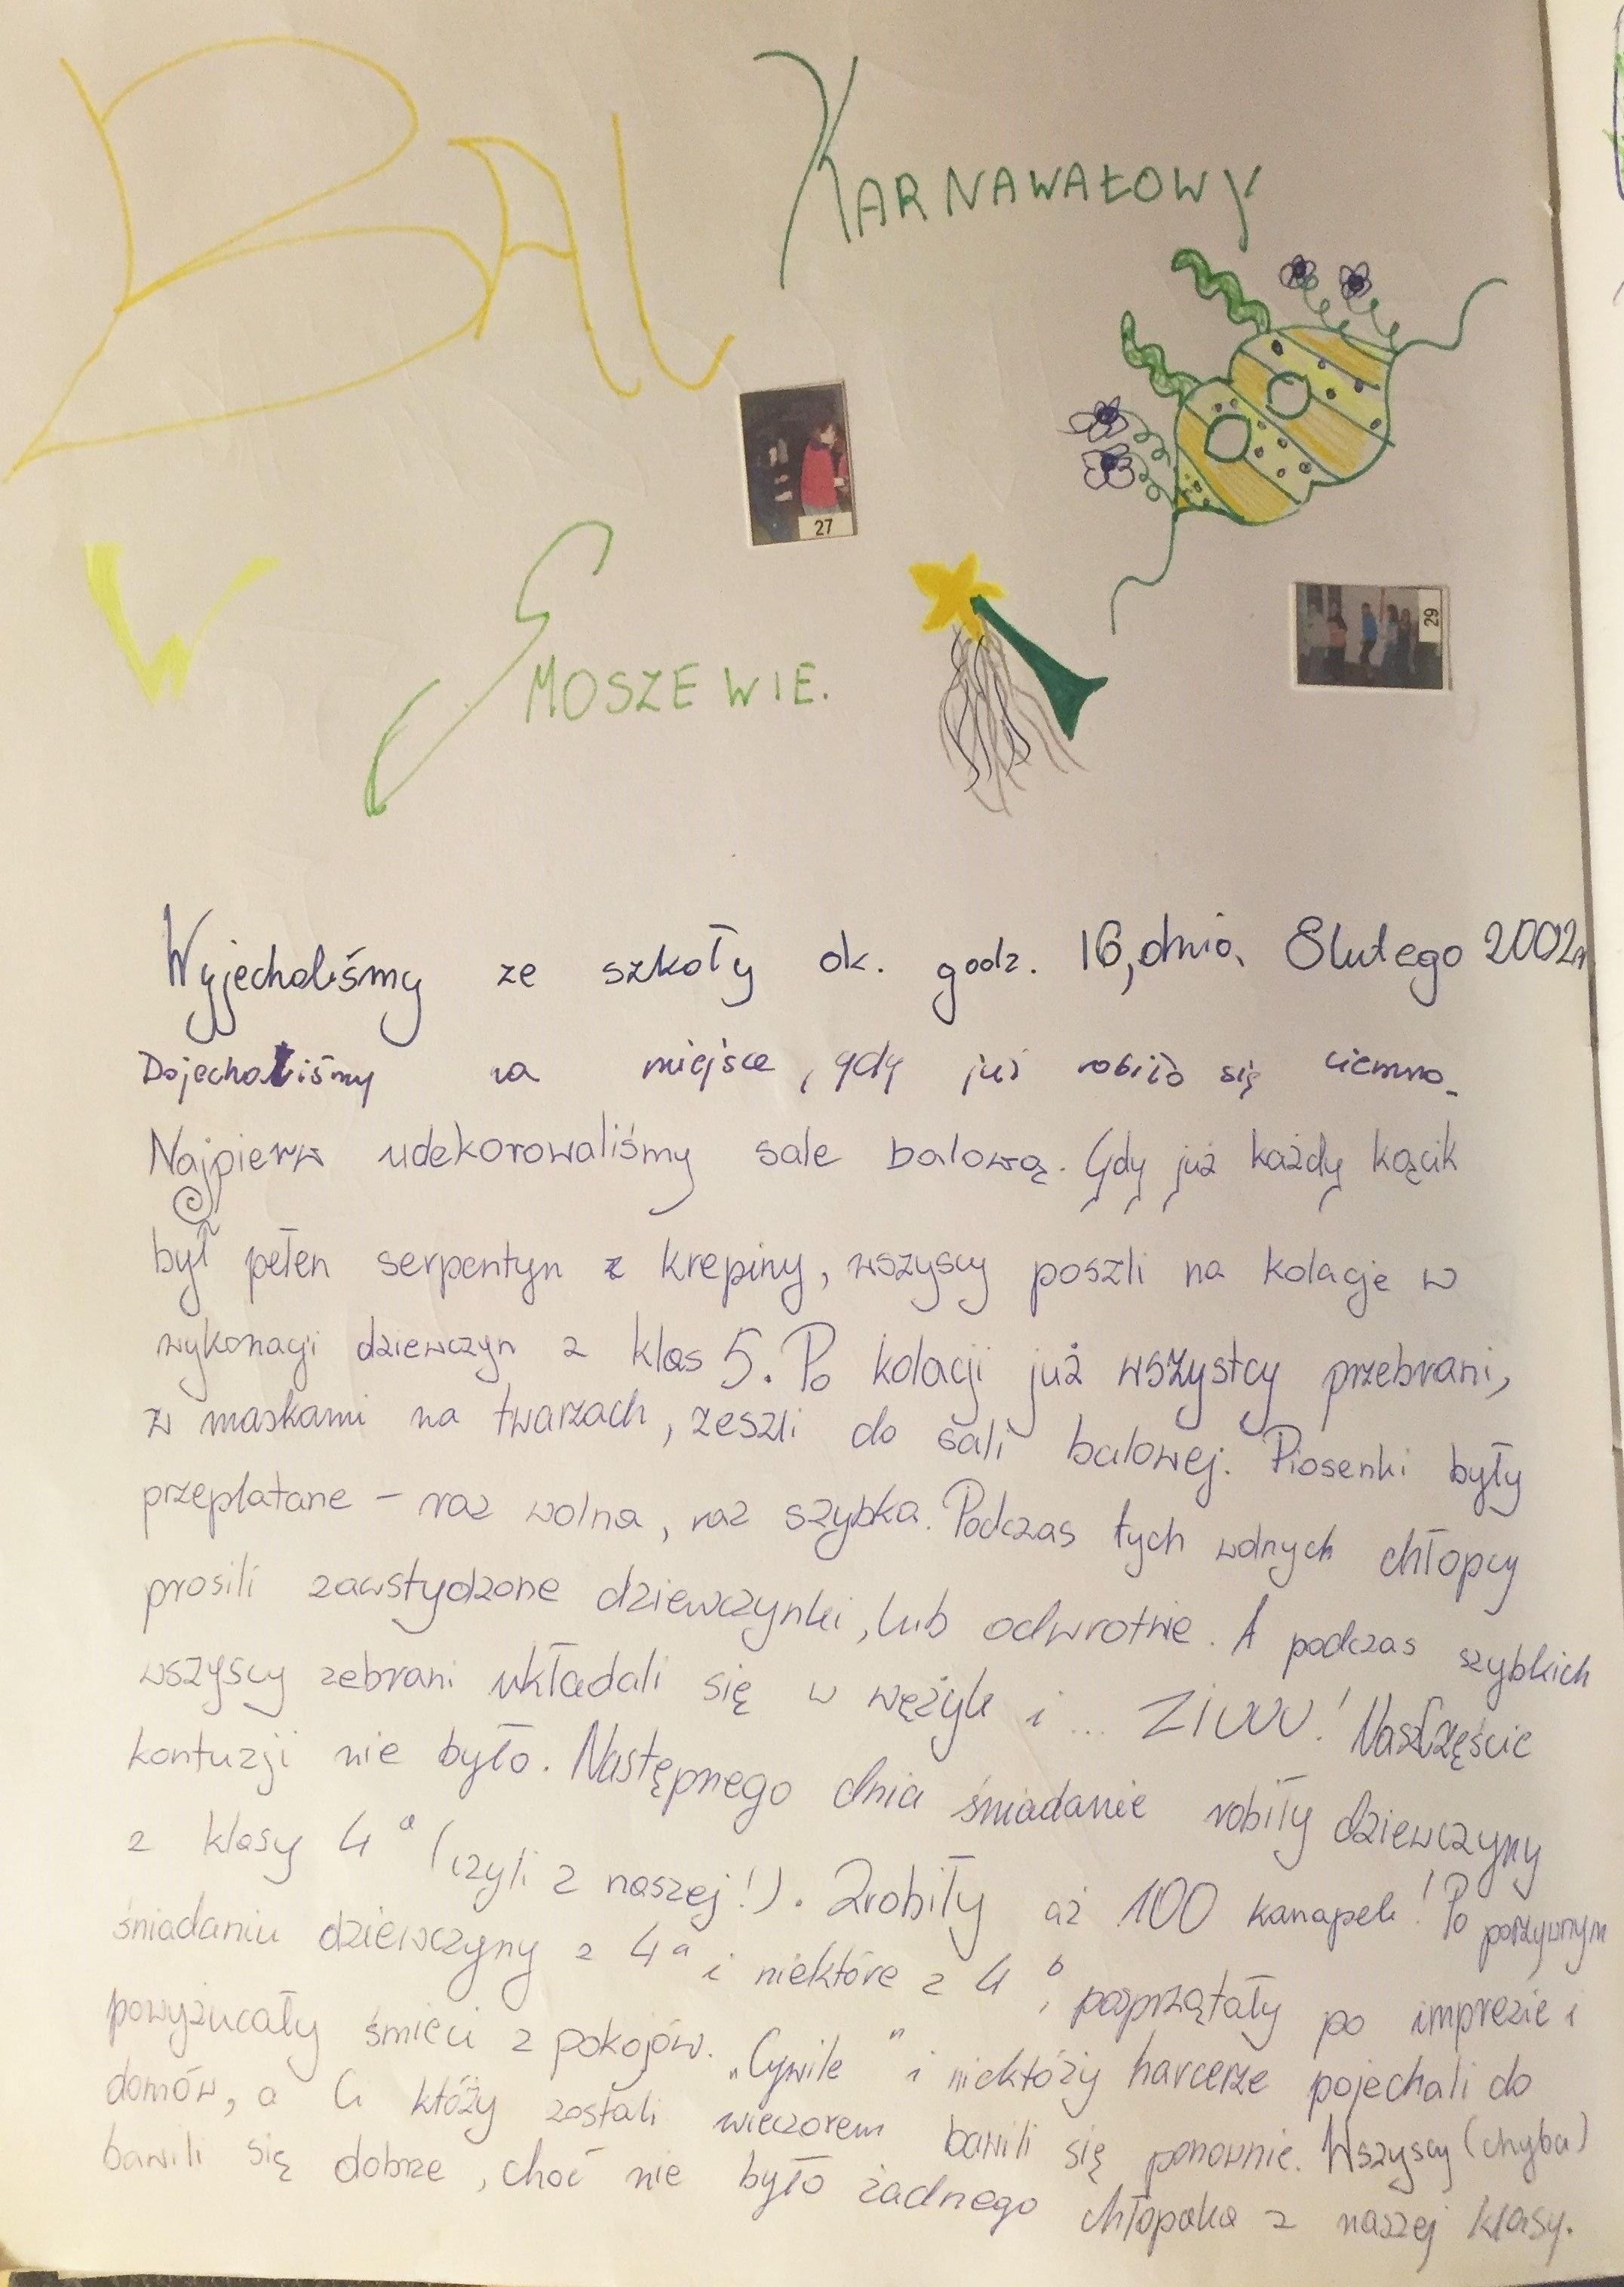 BAL KARNAWAŁOWY
27
W SMOSZEWIE.
29
Wyjechaliśmy ze szkoły ok. godz. 16, dnia 8 lutego 2002r
Dojechaliśmy na miejsce, gdy już robiło się ciemno.
Najpierw udekorowaliśmy sale balową. Gdy już każdy kącik
był pełen serpentyn z krepiny, wszyscy poszli na kolacje w
wykonagi dziewczyn z klas 5. Po kolacji już wszystcy przebrani,
z maskami na twarzach, zeszli do sali balowej. Piosenki były
przeplatane - raz wolna, raz szybka. Podczas tych wolnych chłopcy
prosili zawstydzone dziewczynki, lub odwrotnie. A podczas szybkich
wszyscy zebrani układali się w wężyk i ... ZIUUU! Naszczęście
kontuzji nie było. Następnego dnia śniadanie robiły dziewczyny
z klasy 4a (czyli z naszej!). Zrobiły aż 100 kanapek! Po pożywnym
śniadaniu dziewczyny z 4a i niektóre z 4b, posprzątały po imprezie i
powyżucały śmieci z pokojów. „Cywile" i niektóży harcerze pojechali do
domów, a Ci któży zostali wieczorem bawili się ponownie. Wszyscy (chyba)
bawili się dobrze, choć nie było żadnego chłopaka z naszej klasy.